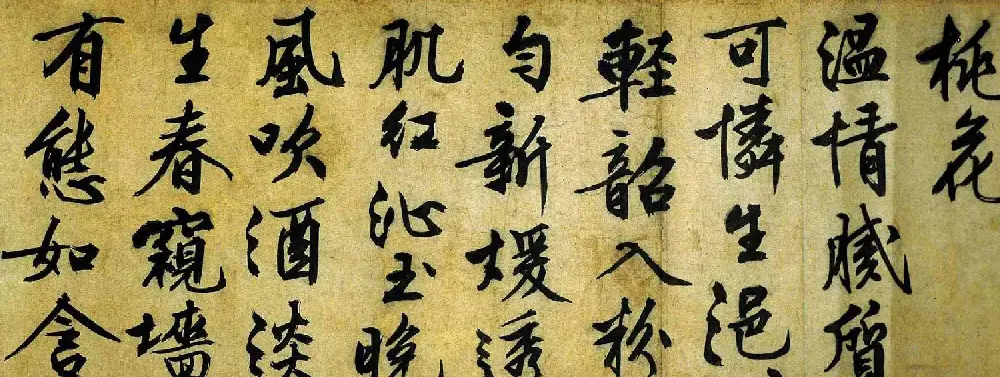 桃花
温情膩質
可憐生浥
輕韶入粉
匀新煖透
肌紅沁玉晚
風吹酒淡
生春窺墻
有態如含